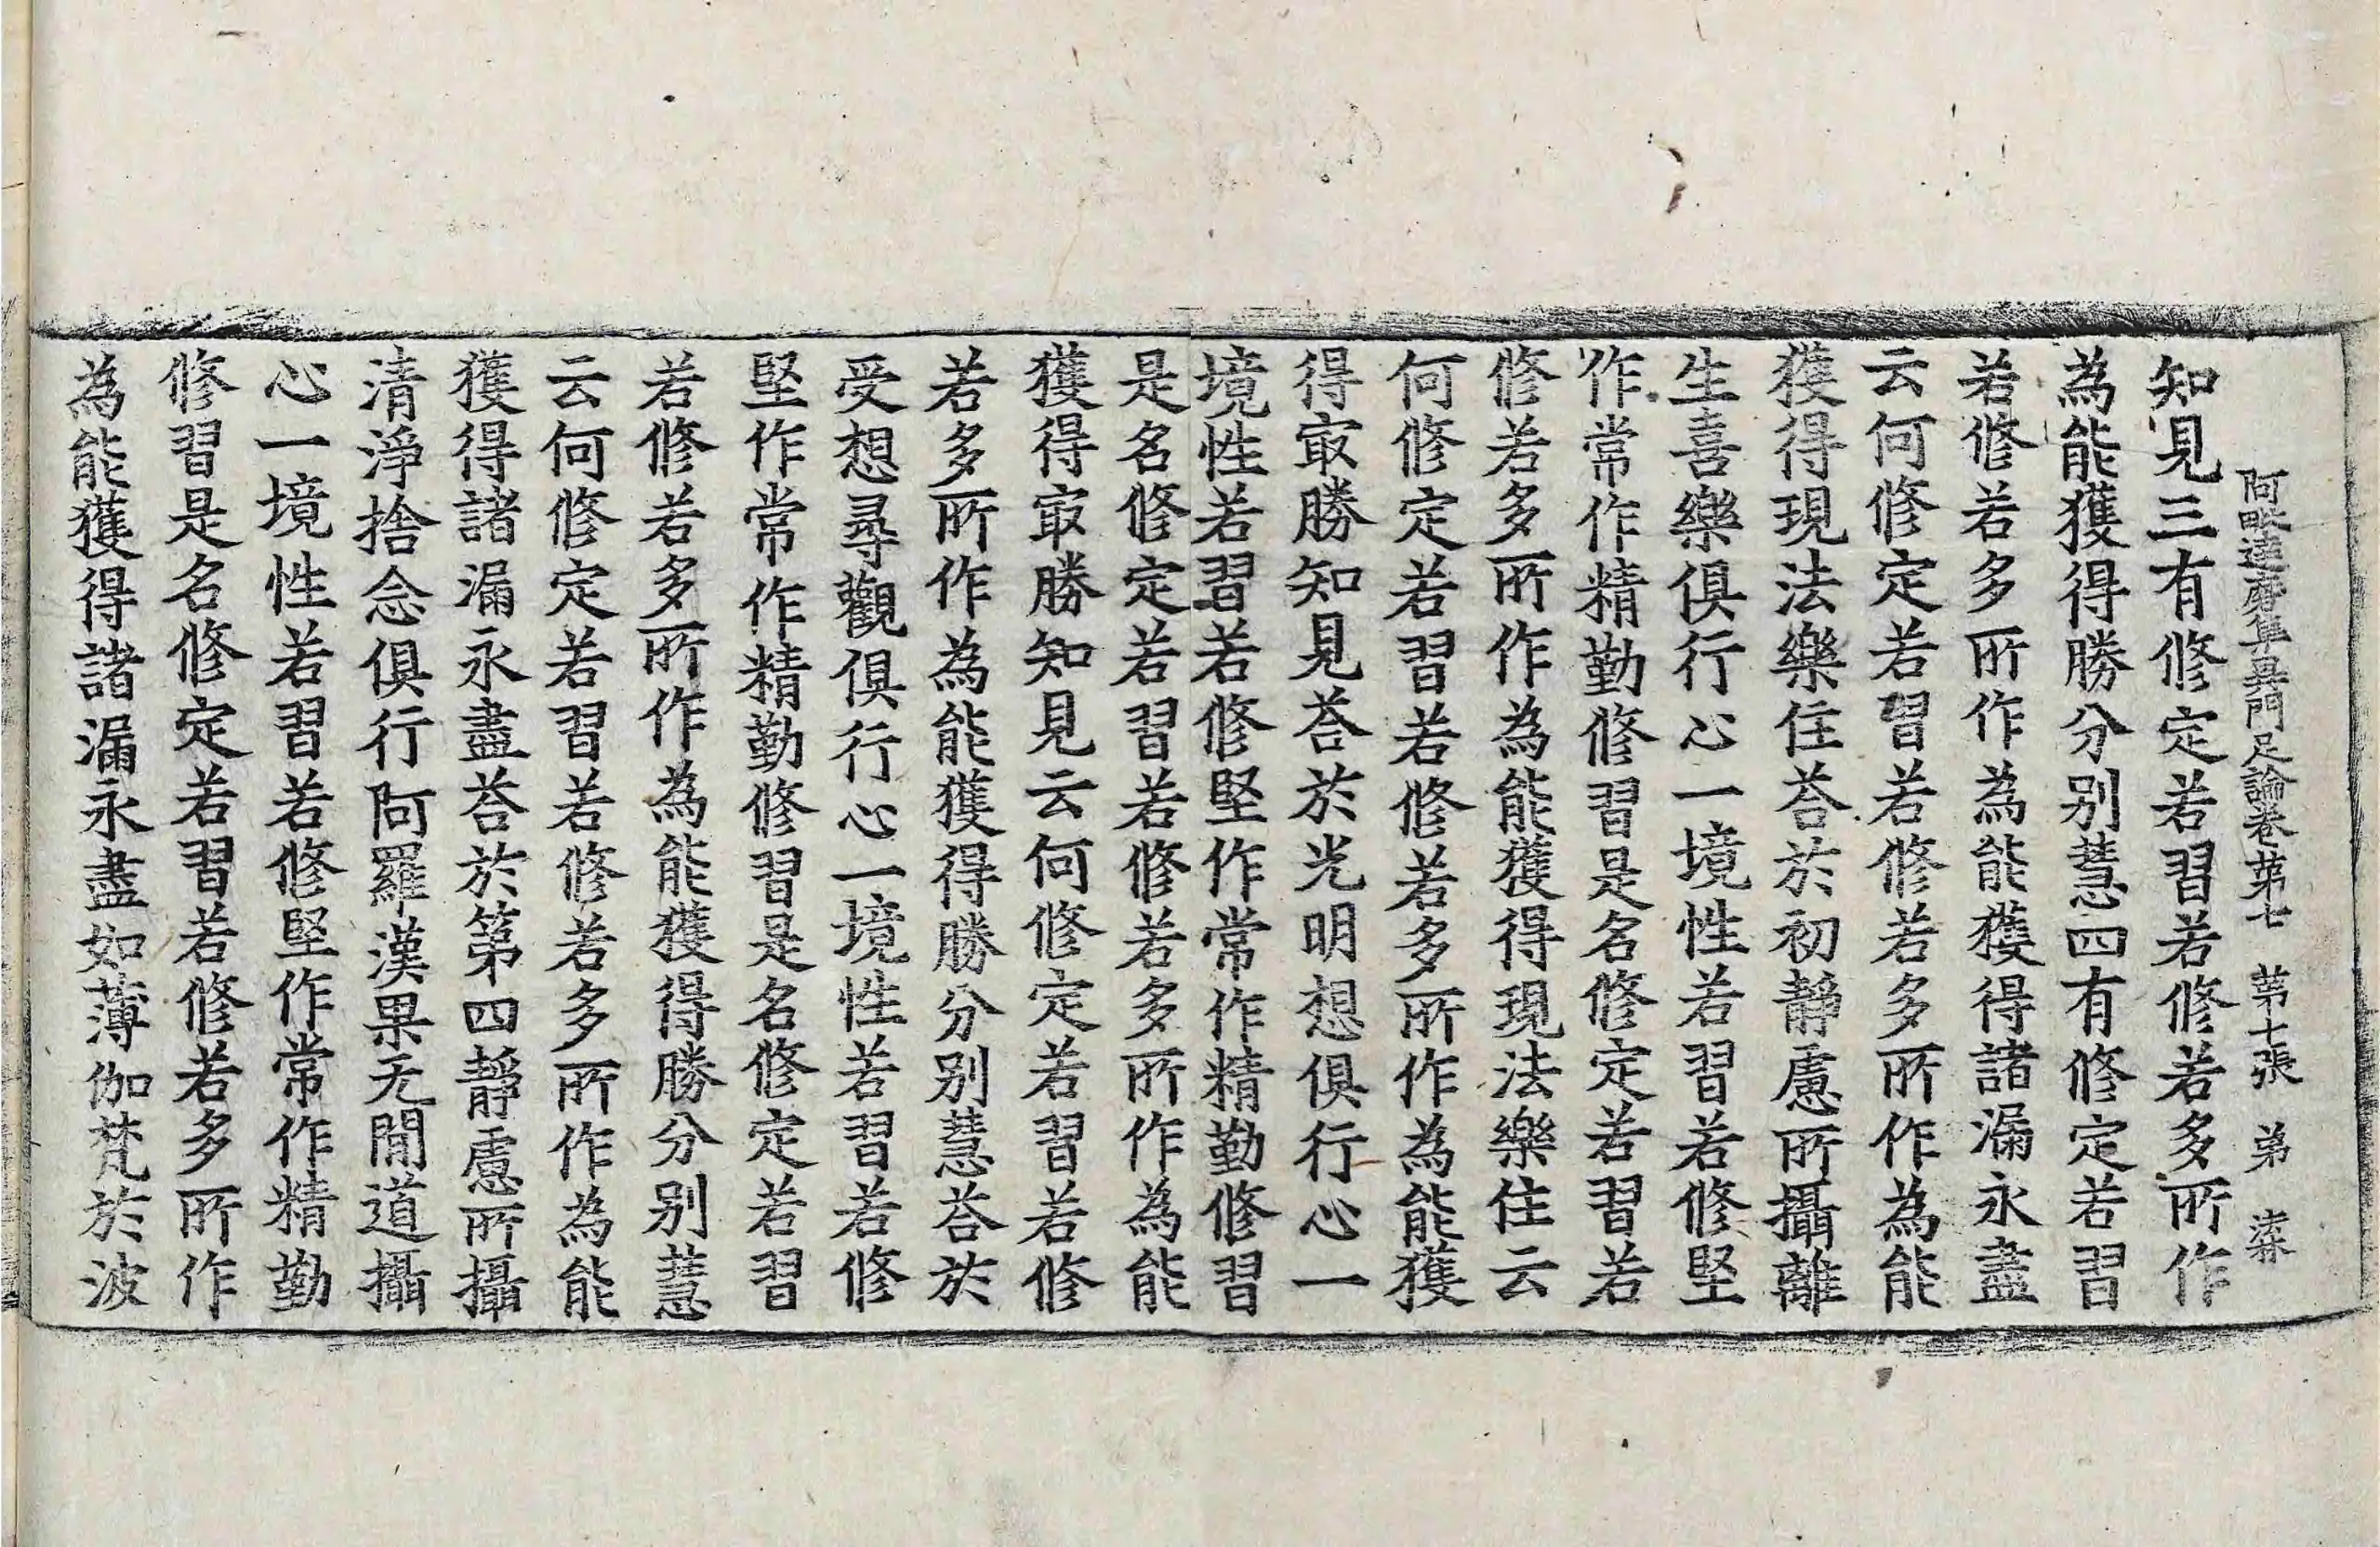 阿毗達磨集異門足論卷第七 第七張 弟
知見三有修定若習若修若多所作
為能獲得勝分别慧四有修定若習
若修若多所作為能獲得諸漏永盡
云何修定若習若修若多所作為能
獲得現法樂住荅於初靜慮所攝離
生喜樂俱行心一境性若習若修堅
作常作精勤修習是名修定若習若
修若多所作為能獲得現法樂住云
何修定若習若修若多所作為能獲
得㝡勝知見荅於光明想俱行心一
境性若習若修堅作常作精勤修習
是名修定若習若修若多所作為能
獲得㝡勝知見云何修定若習若修
若多所作為能獲得勝分别慧荅於
受想尋觀俱行心一境性若習若修
堅作常作精勤修習是名修定若習
若修若多所作為能獲得勝分别慧
云何修定若習若修若多所作為能
獲得諸漏永盡荅於第四靜慮所攝
清淨捨念俱行阿羅漢果无間道攝
心一境性若習若修堅作常作精勤
修習是名修定若習若修若多所作
為能獲得諸漏永盡如薄伽梵於波